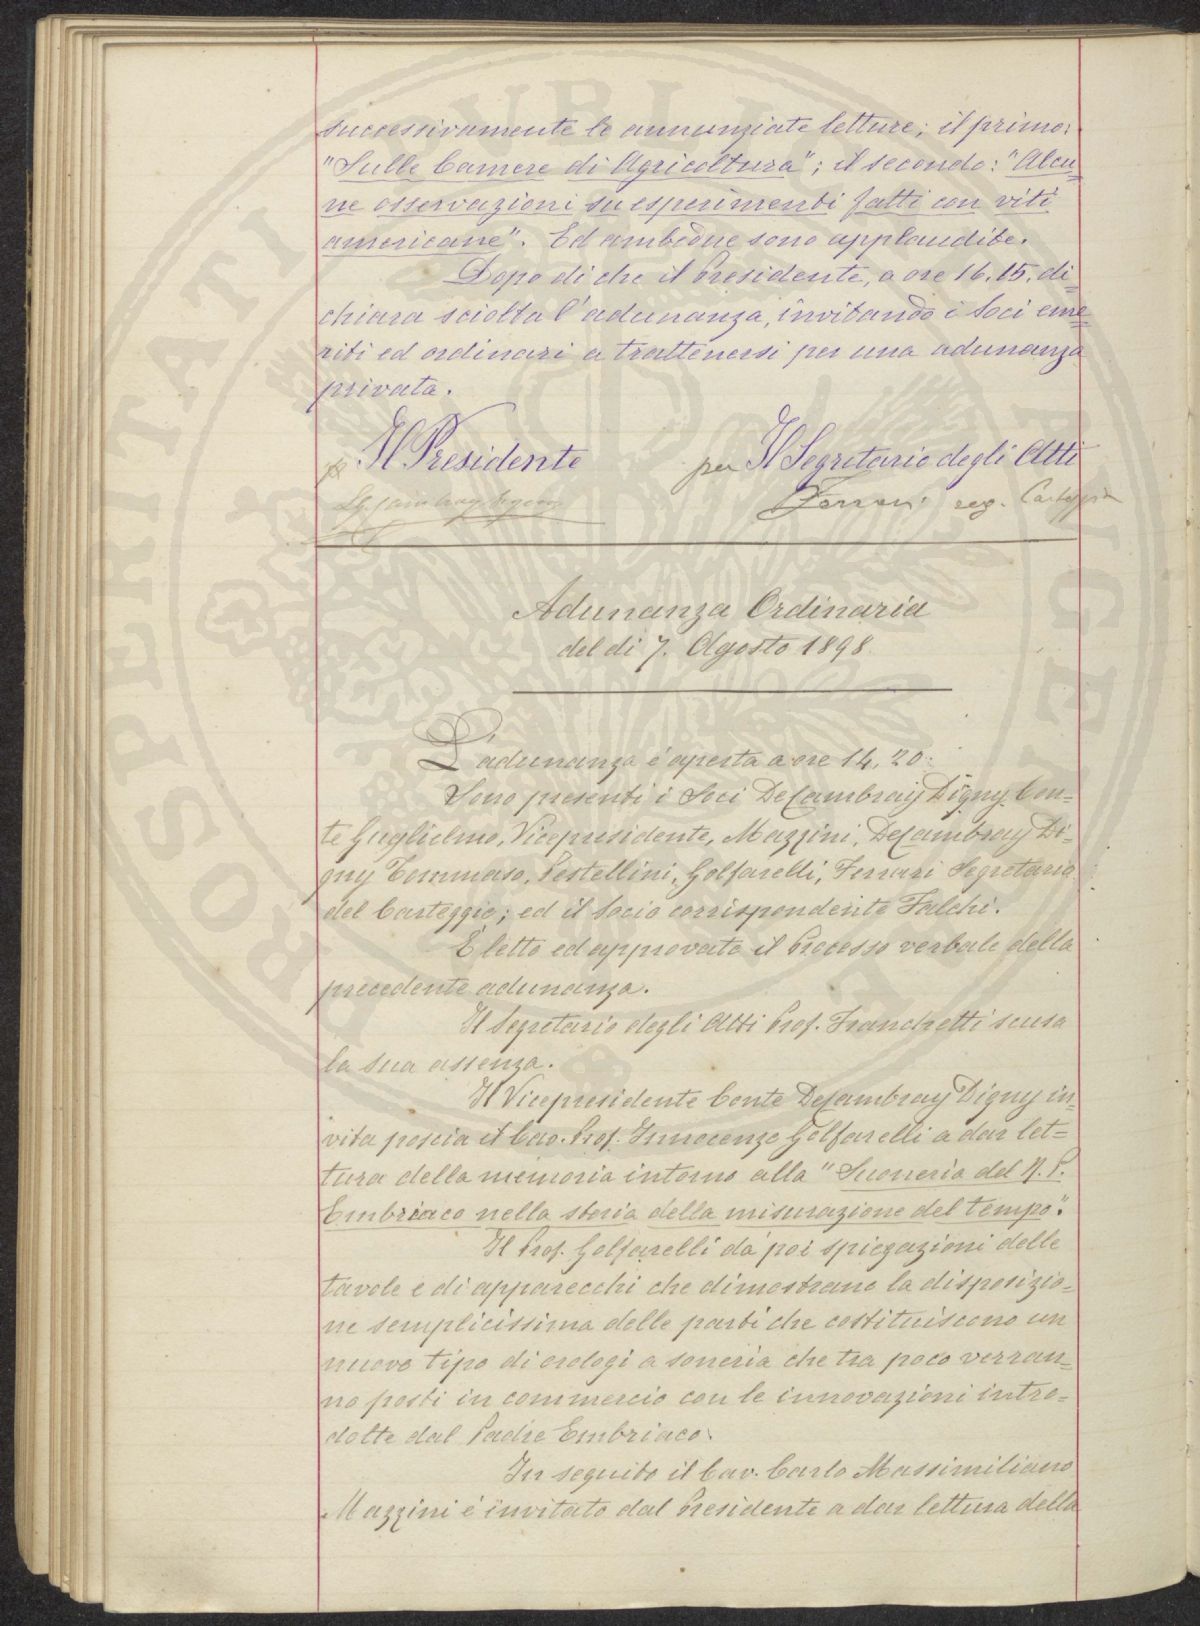 successivamente le annunziate letture; il primo:
"Sulle Camere di Agricoltura"; il secondo: "Alcu=
ne osservazioni su esperimenti fatti con viti
americane". Ed ambedue sono applaudite.
Dopo di che il Presidente, a ore 16.15. di=
chiara sciolta l'adunanza, invitando i Soci eme=
riti ed ordinari a trattenersi per una adunanza
privata.
Il Presidente
per Il Segretario degli Atti
Ferrari seg. Carteggio
Adunanza Ordinaria
del di 7. Agosto 1898.
L'adunanza è aperta a ore 14.20.
Sono presenti i Soci De Cambray Digny Con=
te Guglielmo, Vicepresidente, Mazzini, De Cambray Di=
gny Tommaso, Pestellini, Golfarelli, Ferrari Segretario
del Carteggio; ed il Socio corrispondente Falchi.
È letto ed approvato il Processo verbale della
precedente adunanza.
Il Segretario degli Atti Prof. Franchetti scusa
la sua assenza.
Il Vicepresidente Conte De Cambray Digny in=
vita poscia il Cav. Prof. Innocenzo Golfarelli a dar let=
tura della memoria intorno alla "Suoneria del N. P.
Embriaco nella storia della misurazione del tempo".
Il Prof. Golfarelli dà poi spiegazioni delle
tavole e di apparecchi che dimostrano la disposizio=
ne semplicissima delle parti che costituiscono un
nuovo tipo di orologi a soneria che tra poco verran=
no posti in commercio con le innovazioni intro=
dotte dal Padre Embriaco.
In seguito il Cav. Carlo Massimiliano
Mazzini è invitato dal Presidente a dar lettura della